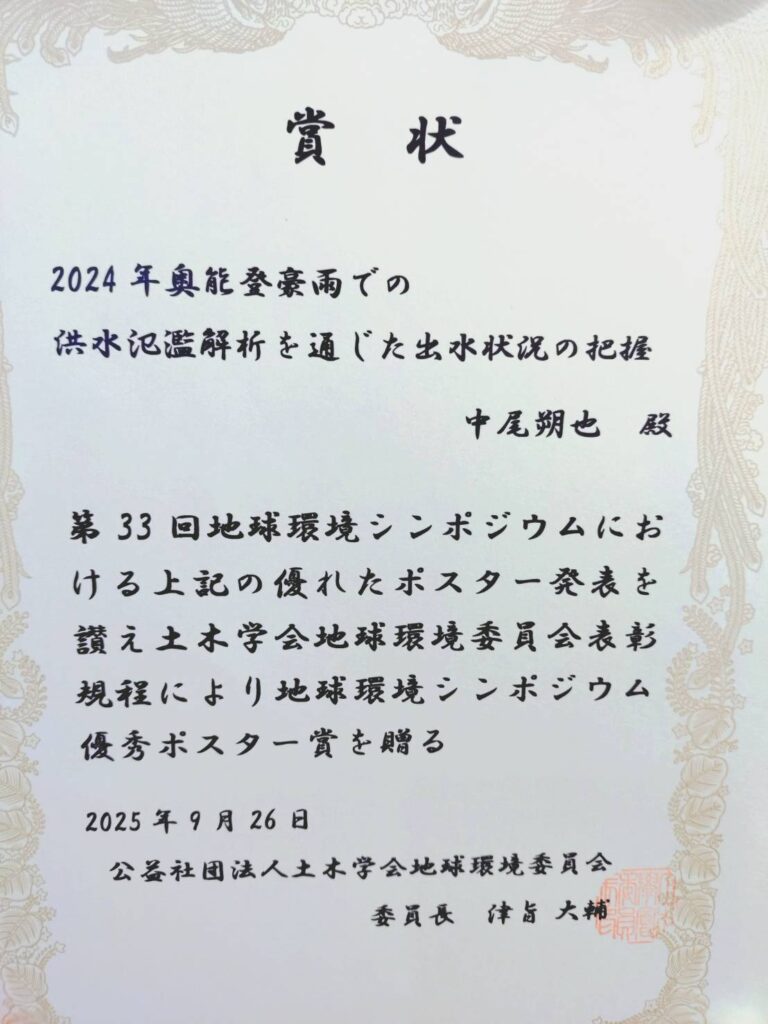 賞 状
2024年奥能登豪雨での
洪水氾濫解析を通じた出水状況の把握
中尾朔也 殿
第33回地球環境シンポジウムにお
ける上記の優れたポスター発表を
讃え土木学会地球環境委員会表彰
規程により地球環境シンポジウム
優秀ポスター賞を贈る
2025年9月26日
公益社団法人土木学会地球環境委員会
委員長 津旨 大輔